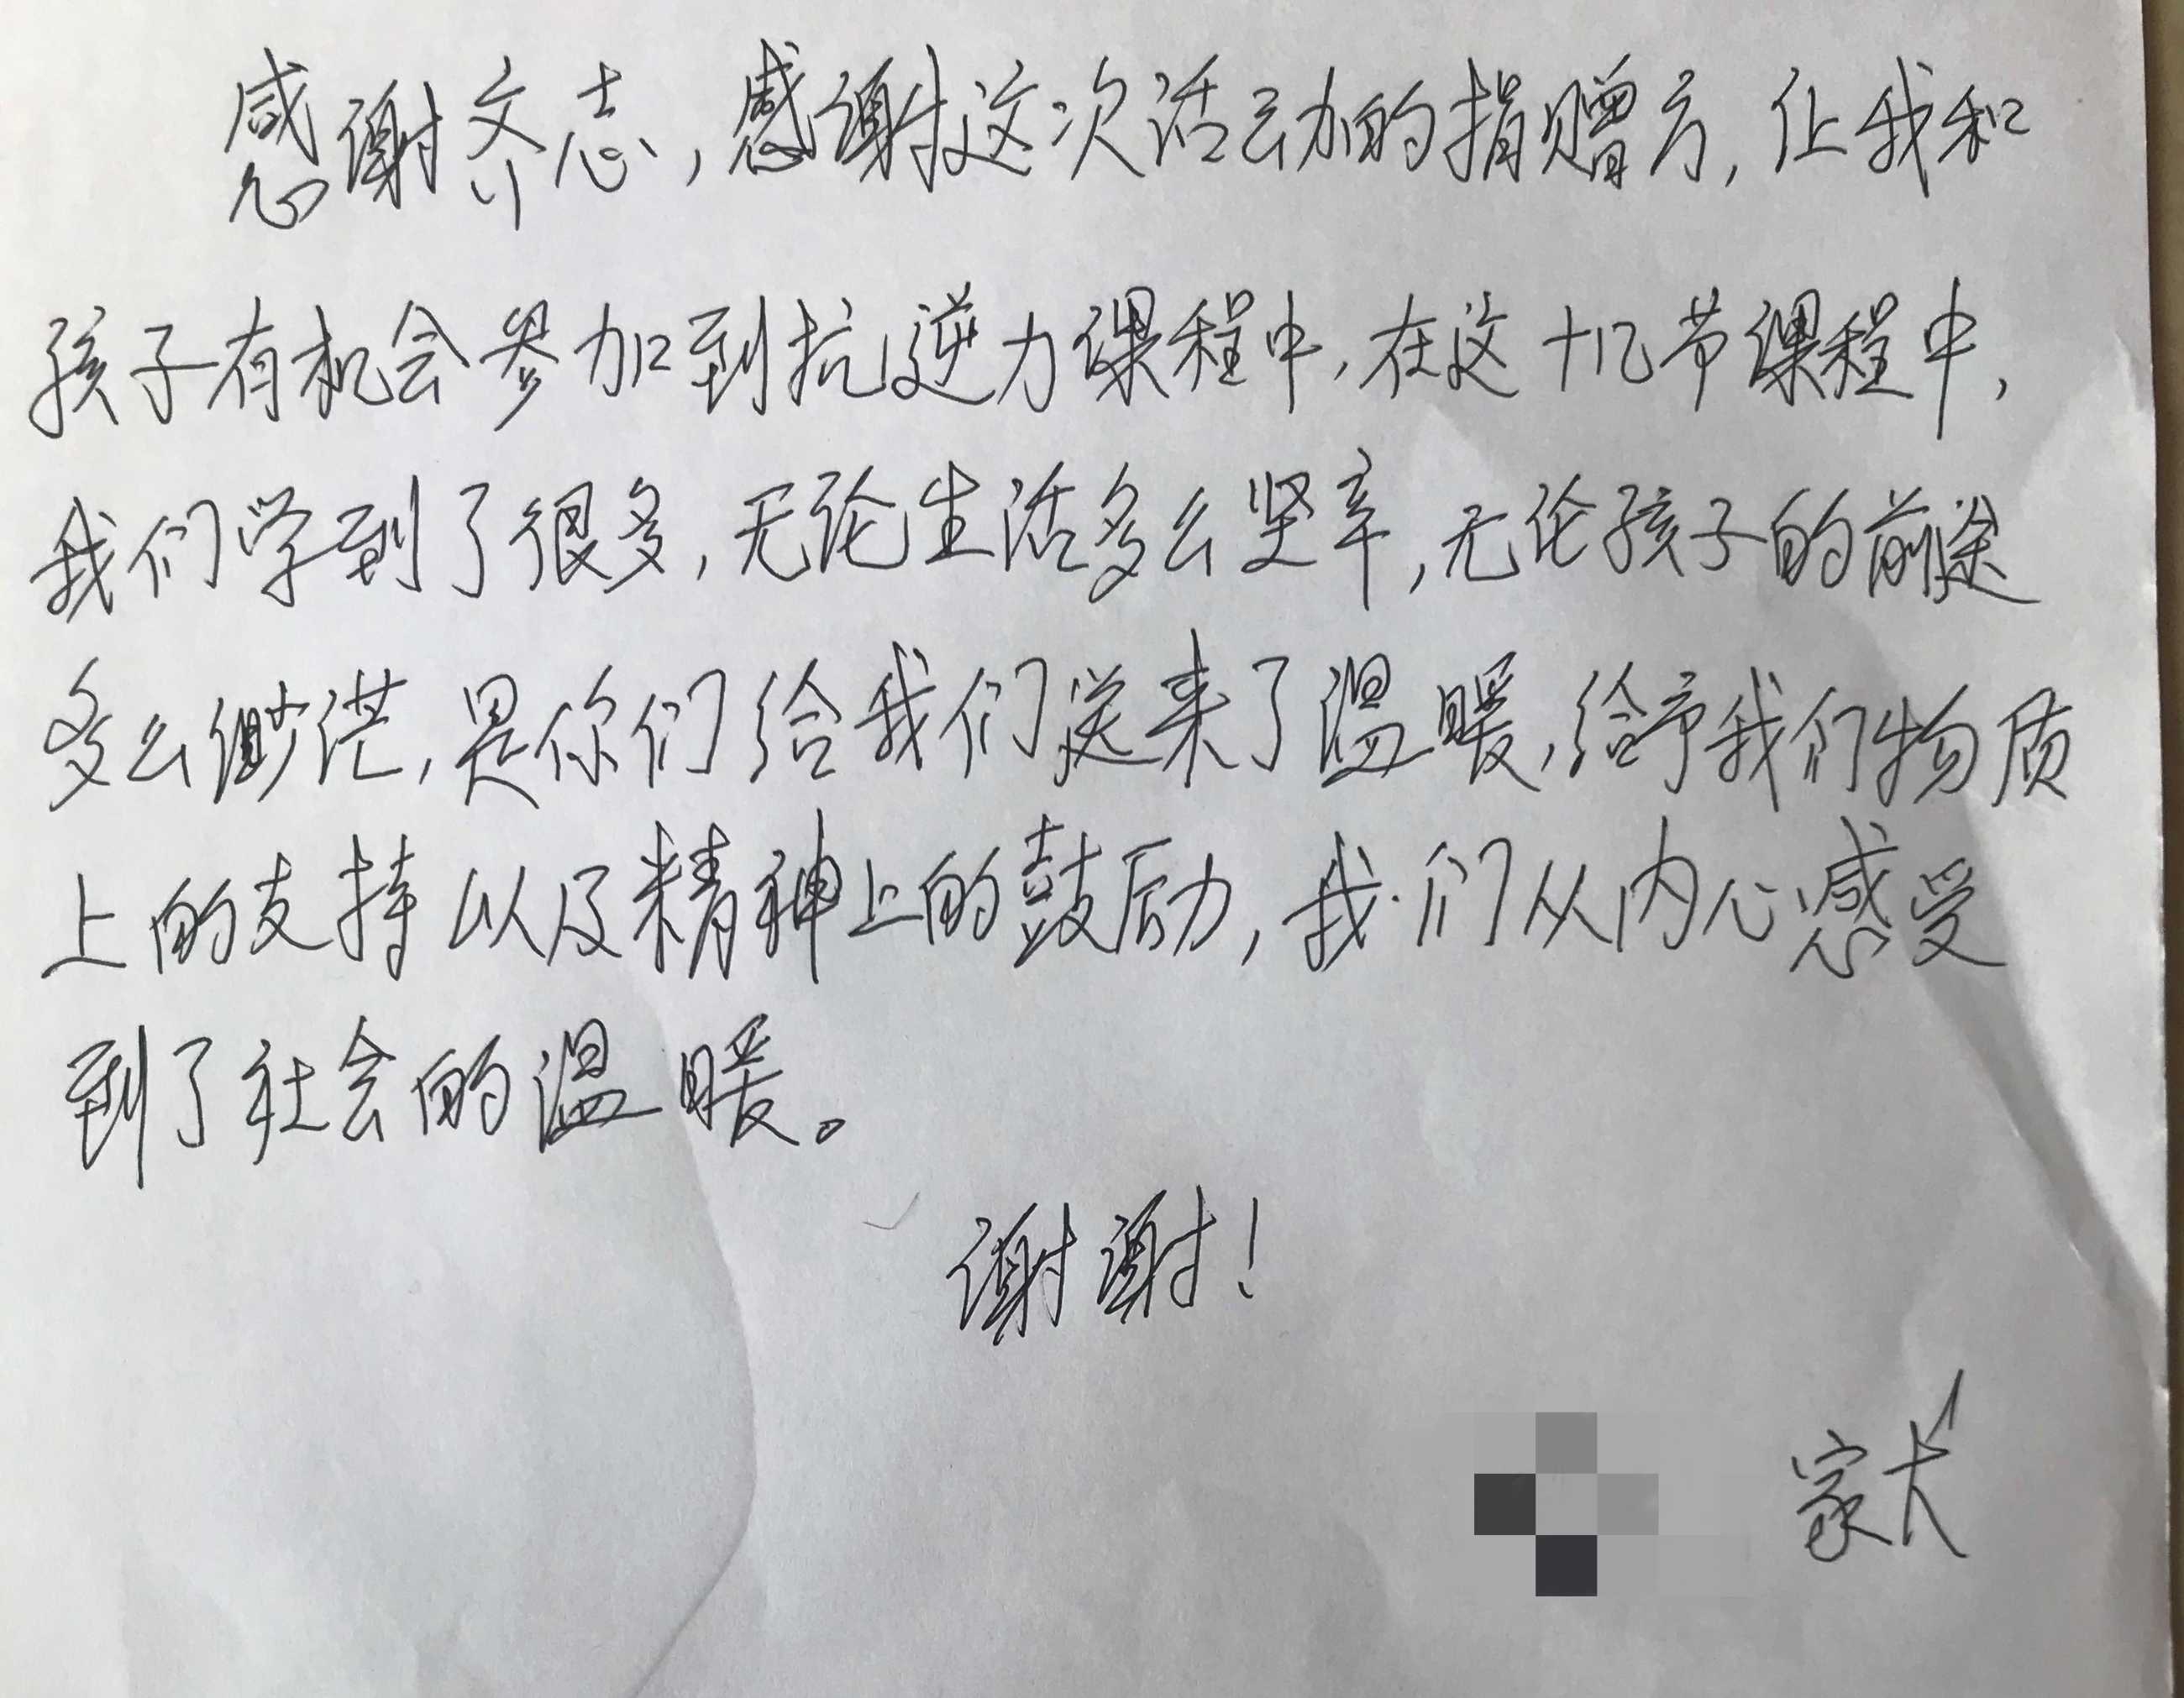 感谢齐志,感谢这次活动的捐赠方,让我和
孩子有机会参加到抗逆力课程中,在这十几节课程中,
我们学到了很多,无论生活多么坚辛,无论孩子的前途
多么缈茫,是你们给我们送来了温暖,给予我们物质
上的支持以及精神上的鼓励,我们从内心感受
到了社会的温暖。
谢谢!
家长